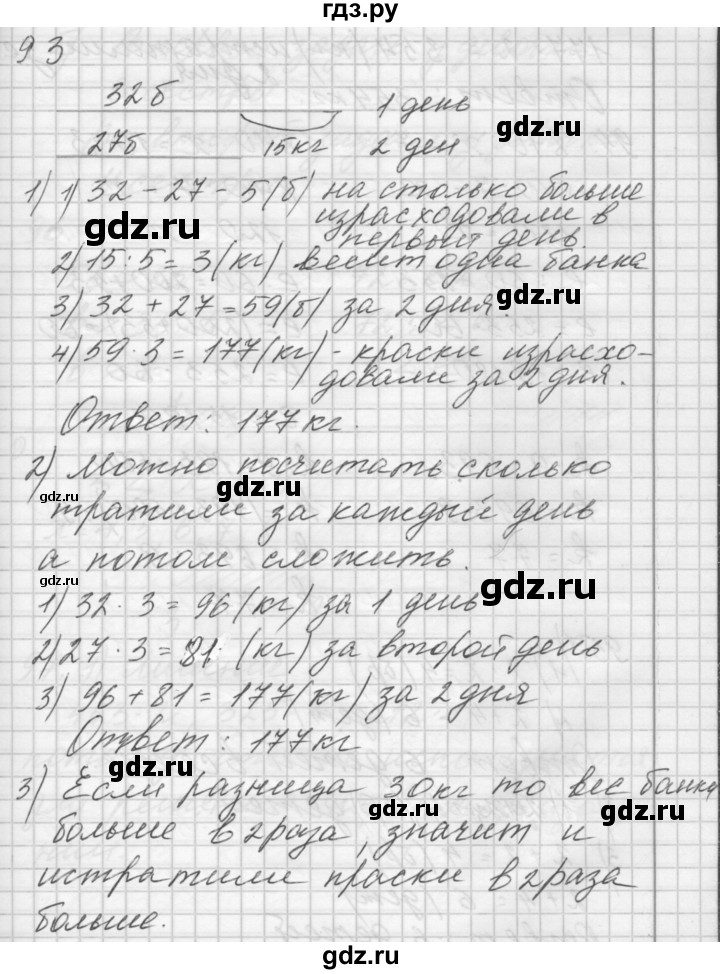 гдз.ру
93
32б
1 день
gdz.ru
27б 15кг 2 ден
1) 1) 32 - 27 - 5(б) на столько больше
израсходовали в
gdz.ru
первый день.
2) 15 : 5 = 3 (кг) весит одна банка
gdz.ru
3) 32 + 27 = 59(б) за 2 дня.
4) 59 · 3 = 177(кг) - краски израсхо-
gdz.ru
довали за 2 дня.
Ответ: 177 кг.
2) Можно посчитать сколько
gdz.ru
gdz.ru
тратили за каждый день
а потом сложить.
gdz.ru
gdz.ru
1) 32 · 3 = 96 (кг) за 1 день
2) 27 · 3 = 81 (кг) за второй день
3) 96 + 81 = 177(кг) за 2 дня
Ответ: 177 кг
gdz.ru
3) Если разница 30 кг то вес банки
gdz.ru
gdz.ru
больше в 2 раза, значит и
истратили праски в 2 раза
больше.
gdz.ru